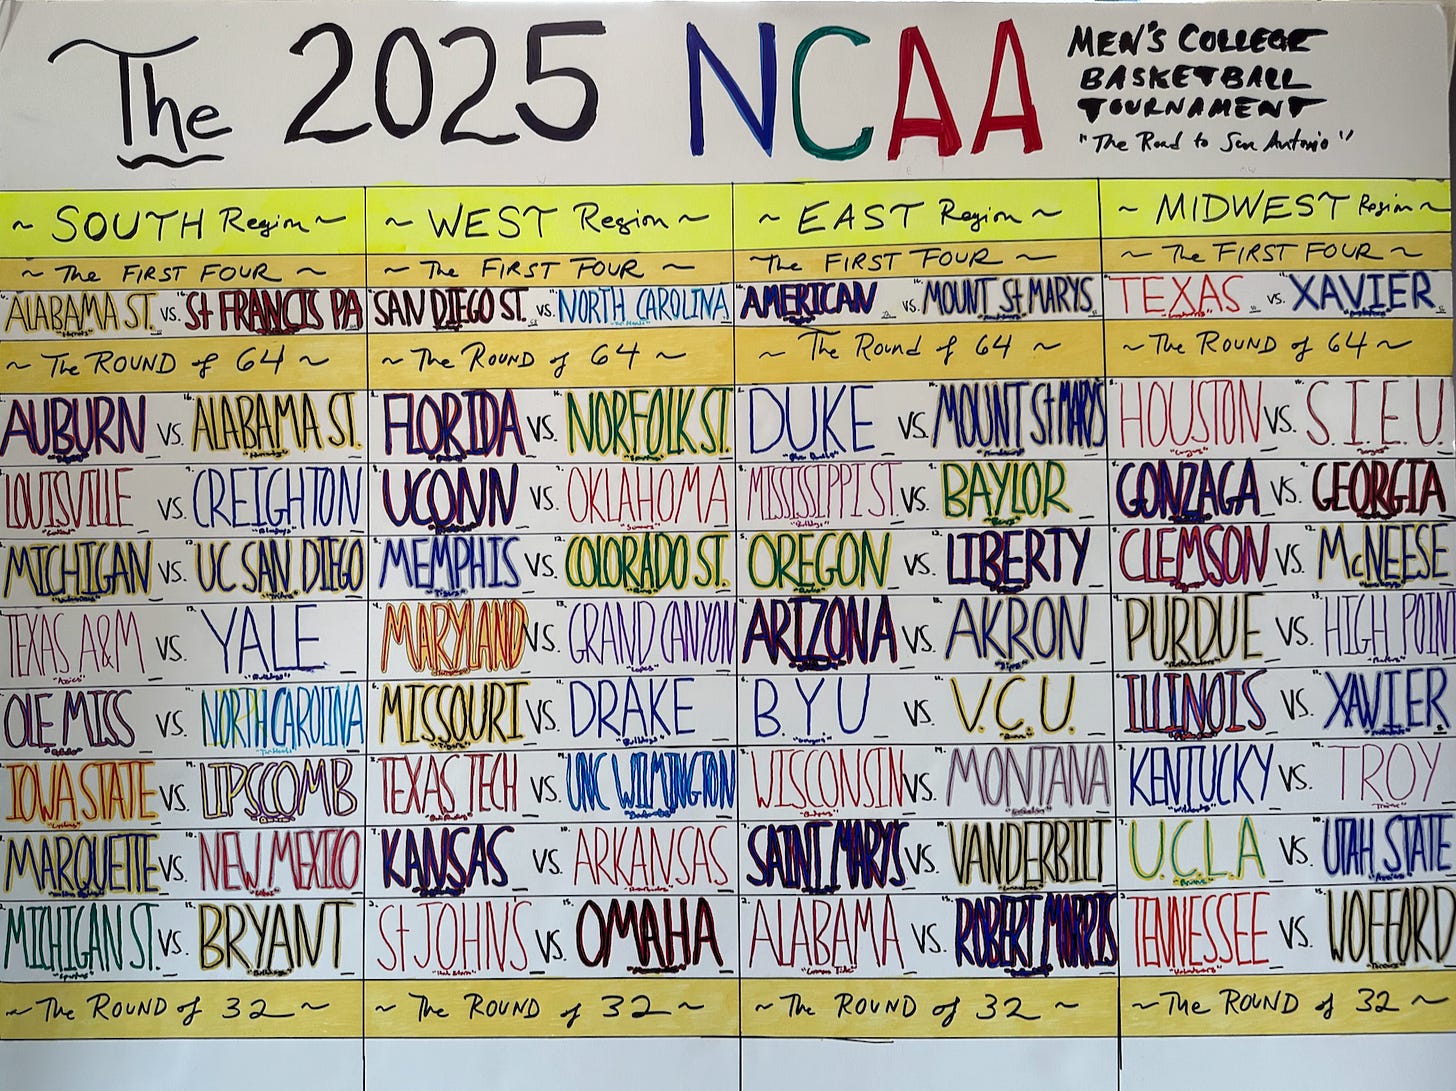 The 2025 NCAA
MEN'S COLLEGE
BASKETBALL
TOURNAMENT
"The Road to San Antonio"
~ SOUTH Region ~
~ WEST Region ~
~ EAST Region ~
~ MIDWEST Region ~
~ The FIRST FOUR ~
~ The FIRST FOUR ~
The FIRST FOUR ~
~ The FIRST FOUR ~
ALABAMA ST. vs. St FRANCIS PA
SAN DIEGO ST. vs. NORTH CAROLINA
AMERICAN vs. MOUNT St MARYS
TEXAS vs. XAVIER
~ The ROUND of 64 ~
~ The ROUND of 64 ~
~ The Round of 64 ~
~ The ROUND of 64 ~
AUBURN VS. ALABAMA ST.
FLORIDA VS. NORFOLK ST.
DUKE VS. MOUNT St MARYS
HOUSTON VS. S.I.E.U.
LOUISVILLE VS. CREIGHTON
UCONN VS. OKLAHOMA
MISSISSIPPI ST VS. BAYLOR
GONZAGA VS. GEORGIA
MICHIGAN VS. UC SAN DIEGO
MEMPHIS VS. COLORADO ST.
OREGON VS. LIBERTY
CLEMSON VS. McNEESE
TEXAS A&M VS. YALE
MARYLAND VS. GRAND CANYON
ARIZONA VS. AKRON
PURDUE VS. HIGH POINT
OLE MISS VS. NORTH CAROLINA
MISSOURI VS. DRAKE
B.Y.U VS. V.C.U.
ILLINOIS VS. XAVIER
IOWA STATE VS. LIPSCOMB
TEXAS TECH VS. UNC WILMINGTON
WISCONSIN VS. MONTANA
KENTUCKY VS. TROY
MARQUETTE VS. NEW MEXICO
KANSAS VS. ARKANSAS
SAINT MARY'S VS. VANDERBILT
U.C.L.A VS. UTAH STATE
MICHIGAN ST. VS. BRYANT
St JOHN'S VS. OMAHA
ALABAMA VS. ROBERT MORRIS
TENNESSEE VS. WOFFORD
~ The ROUND of 32 ~
~ The ROUND of 32 ~
~ The ROUND of 32 ~
~ The ROUND of 32 ~